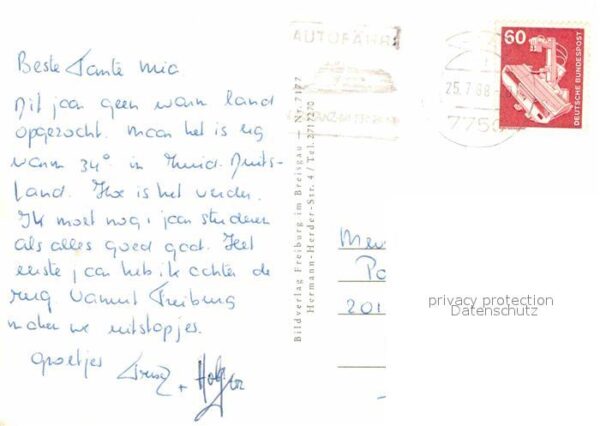 Beste Tante Mia
Dit jaar geen warm land
opgezocht. maar het is erg
warm 34° in Zuid-Duits-
land. Hoe is het verder.
Ik moet nog 1 jaar studeren
als alles goed gaat. Het
eerste jaar heb ik achter de
rug. Vanuit Freiburg
maken we uitstapjes.
groetjes
+ Holger
Bildverlag Freiburg im Breisgau — Nr. 7177
Hermann-Herder-Str. 4 / Tel. 2717270
AUTOFÄHRE
25.7.88
7750
60
DEUTSCHE BUNDESPOST
Mev
Po
201
privacy protection
Datenschutz